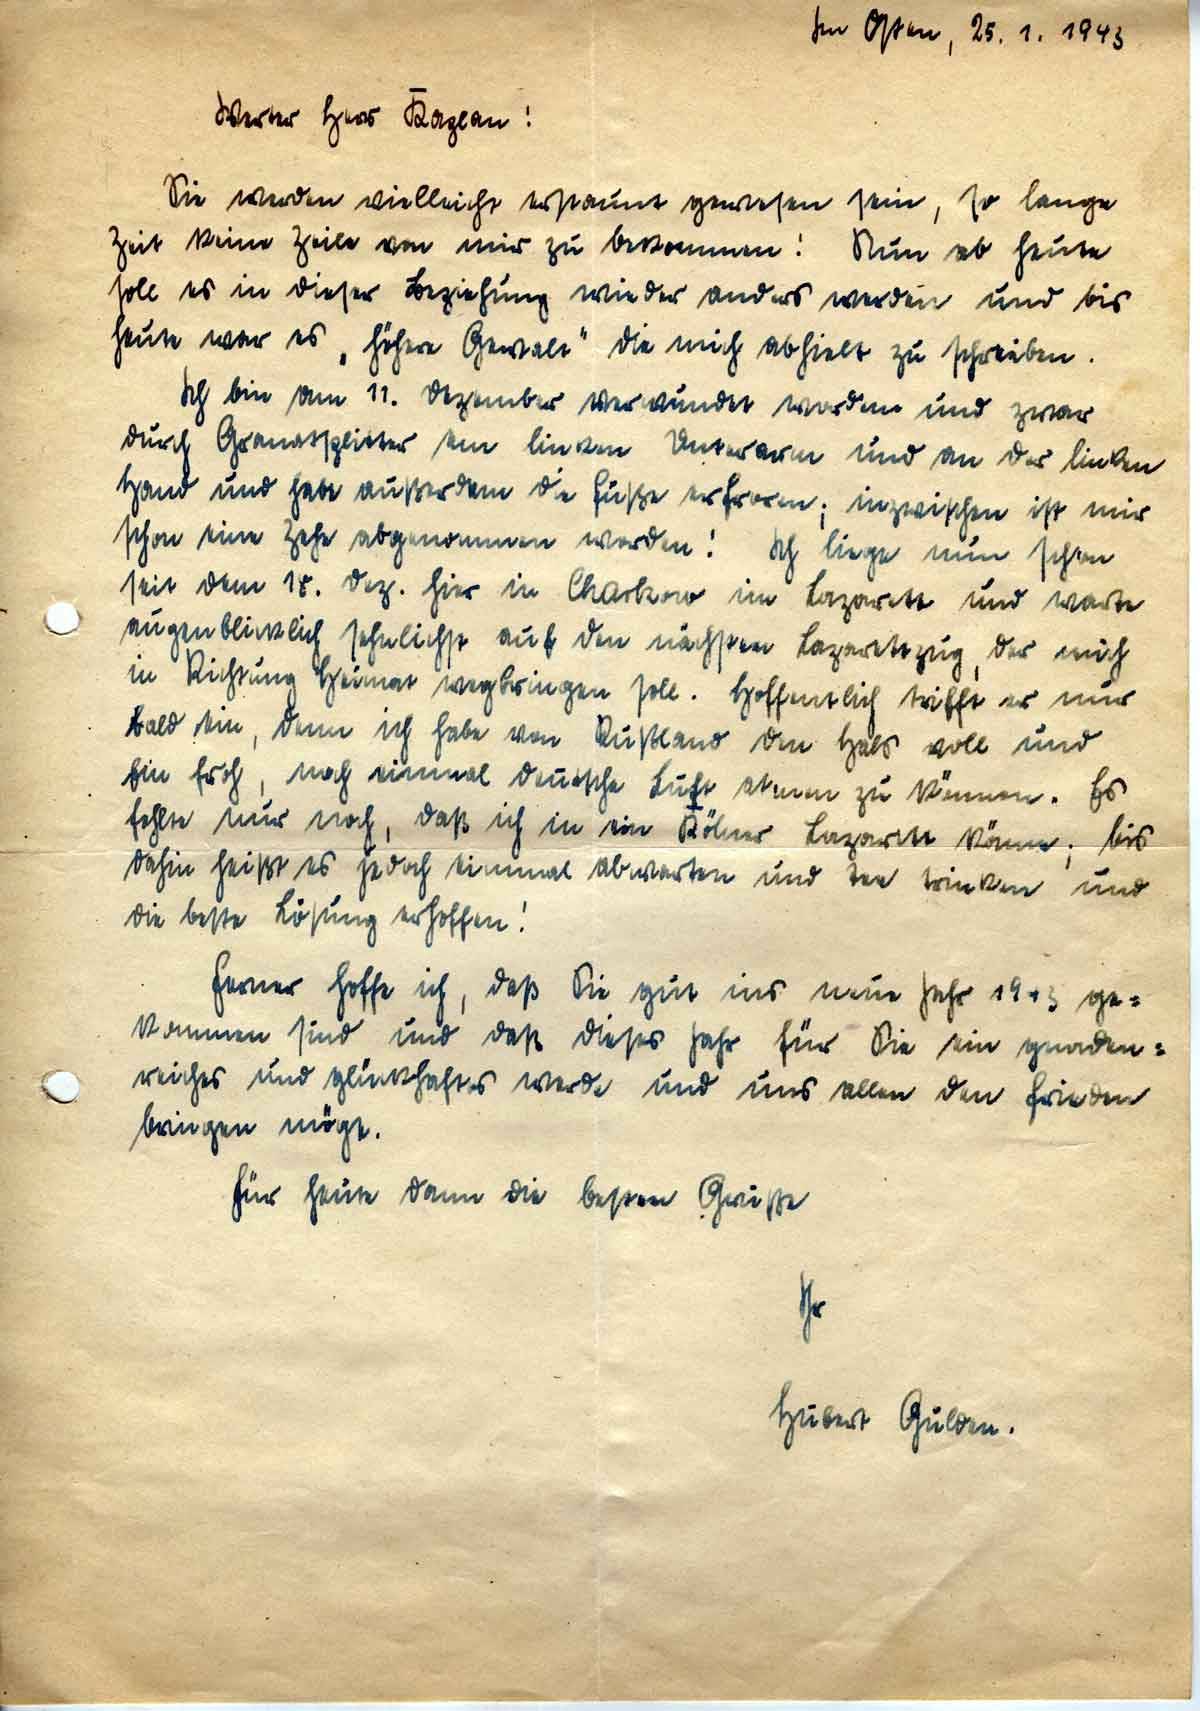 Im Osten, 25. 1. 1943
Werter Herr Kaplan!
Sie werden vielleicht erstaunt gewesen sein, so lange
Zeit keine Zeile von mir zu bekommen! Nun ab heute
soll es in dieser Beziehung wieder anders werden und bis
heute war es „höhere Gewalt“ die mich abhielt zu schreiben.
Ich bin am 11. Dezember verwundet worden und zwar
durch Granatsplitter am linken Unterarm und an der linken
Hand und habe außerdem die Füße erfroren; inzwischen ist mir
schon eine Zehe abgenommen worden! Ich liege nun schon
seit dem 18. Dez. hier in Charkow im Lazarett und warte
augenblicklich sehnlichst auf den nächsten Lazarettzug, der mich
in Richtung Heimat wegbringen soll. Hoffentlich trifft er nur
bald ein, denn ich habe von Rußland den Hals voll und
bin froh, noch einmal deutsche Luft atmen zu können. Es
fehlte nur noch, daß ich in ein Kölner Lazarett käme; bis
dahin heißt es jedoch einmal abwarten und Tee trinken und
die beste Lösung erhoffen!
Ferner hoffe ich, daß Sie gut ins neue Jahr 1943 ge=
kommen sind und daß dieses Jahr für Sie ein gnaden=
reiches und glückhaftes werde und uns allen den Frieden
bringen möge.
Für heute dann die besten Grüße
Ihr
Hubert Gülden.